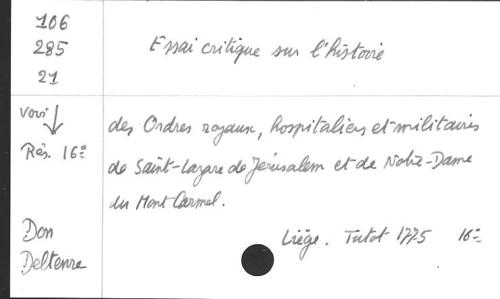 106
285
21
Essai critique sur l'histoire
Voir
Rés. 16°
des Ordres royaux, hospitaliers et militaires
de Saint-Lazare de Jérusalem et de Notre-Dame
du Mont Carmel.
Liège. Tutot 1775 16°
Don
Deltenre